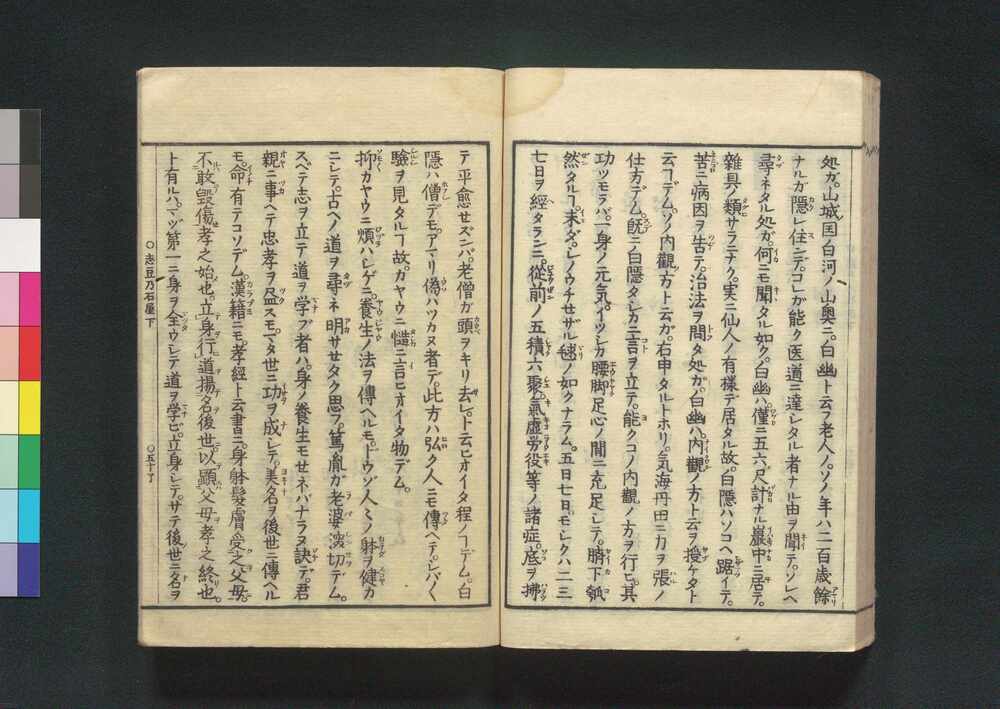 処ガ。山城国白河ノ山奥ニ。白幽ト云フ老人ノ。ソノ年ハ二百歳餘
ナルガ隠レ住ンデ。コレガ能ク医道ニ達シタル者ナル由ヲ聞テ。ソレヘ
尋ネタル処ガ。何ニモ聞タル如ク。白幽ハ。僅ニ五六尺計ナル巌中ニ居テ。
雜具ノ類サラニナク。実ニ仙人ノ有様デ居タル故。白隠ハソコヘ踞イテ。
苦ニ病因ヲ告テ。治法ヲ問タ処ガ。白幽ハ。内觀ノ方ト云ヲ授ケタト
云ヿデム。ソノ内觀ノ方ト云ガ。右申タルトホリ。気海丹田ニ力ヲ張ノ
仕方デム。既ニ白隠タシカニ言ヲ立テ。能クコノ内觀ノ方ヲ行ヒ。其
功ツモラバ。一身ノ元気。イツシカ腰脚足心ノ間ニ充足シテ。臍下瓠
然タルヿ。末ダシノウチセザル毬ノ如クナラム。五日七日モシクハ二三
七日ヲ經タランニ。從前ノ五積六聚。氣虚勞役等ノ諸症。底ヲ拂
テ平愈セズンバ。老僧ガ頭ヲキリ去レ。ト云ヒオイタ程ノヿデム。白
隠ハ僧デモ。アマリ偽ハツカヌ者デ。此方ハ弘ク人ニモ傳ヘテ。シバ〱
驗ヲ見タルヿ故。カヤウニ慥ニ言ヒオイタ物デム。
抑カヤウニ煩ハシゲニ。養生ノ法ヲ傳ヘルモ。ドウゾ人々ノ躰ヲ健カ
ニシテ。古ヘノ道ヲ尋ネ明サセタク思フ。篤胤ガ老婆深切デム。
スベテ志ヲ立テ道ヲ学ブ者ハ。身ノ養生モセネバナラヌ訣デ。君
親ニ事ヘテ忠孝ヲ盡スモ。マタ世ニ功ヲ成シテ。美名ヲ後世ニ傳ヘル
モ。命有テコソデム。漢籍ニモ。孝經ト云書ニ。身躰髪膚受之父母
不敢毀傷孝之始也。立身行道揚名後世以顕父母孝之終也。
ト有ルハ。マヅ第一ニ身ヲ全ウシテ道ヲ学ビ。立身シテ。サテ後世ニ名ヲ
○志豆乃石屋下
○五十了